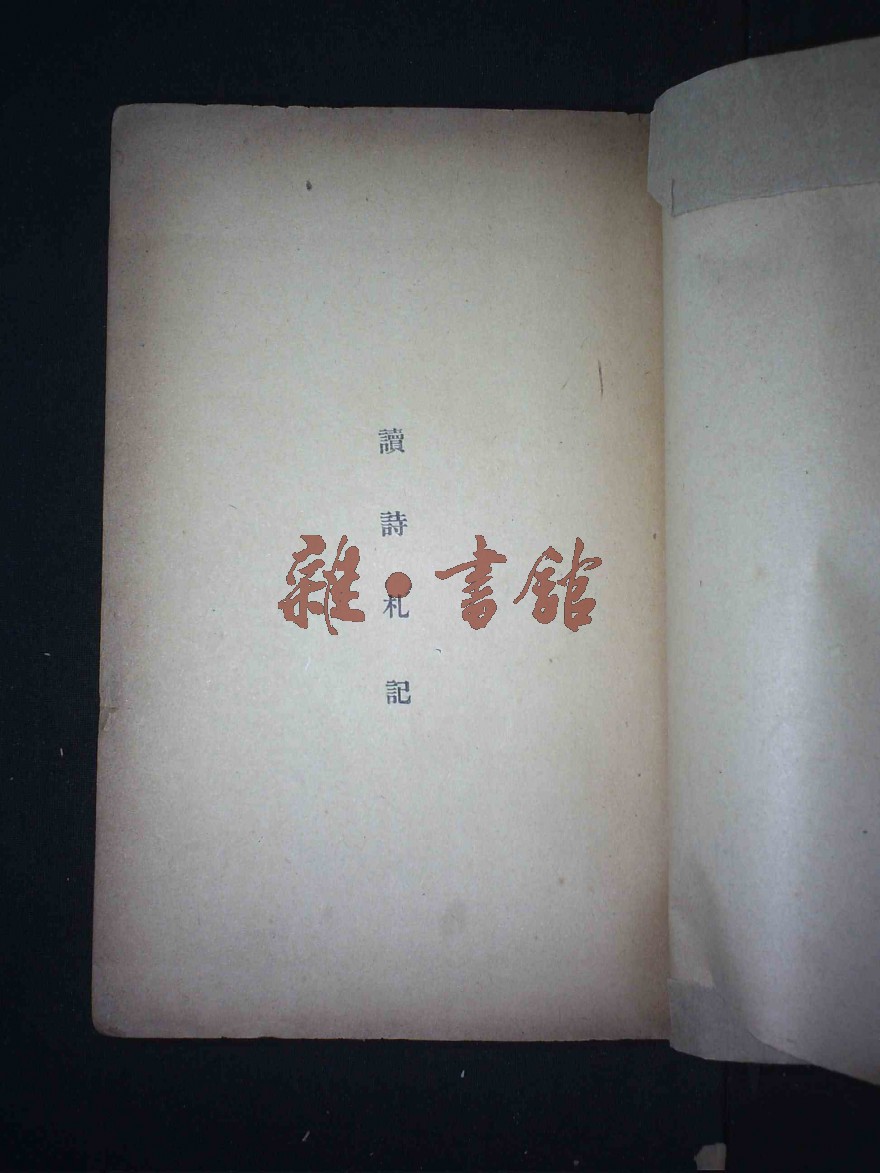 讀詩札記
雜·書館